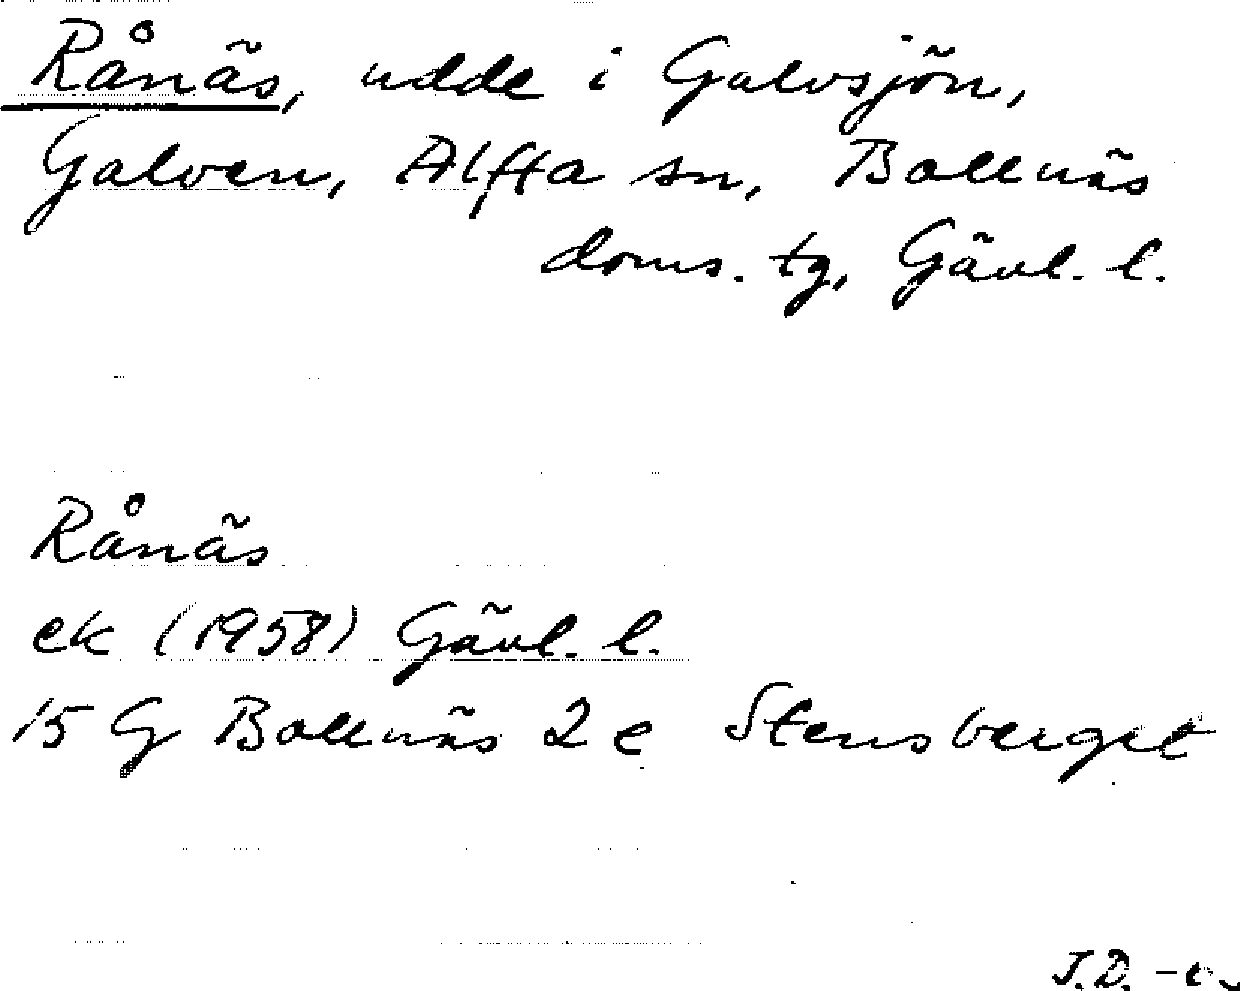 Rånäs, udde i Galvsjön,
Galven, Alfta sn, Bollnäs
doms. tg, Gävl. l.
Rånäs
ek (1958) Gävl. l.
15 G Bollnäs 2 e Stensberget
J.D.